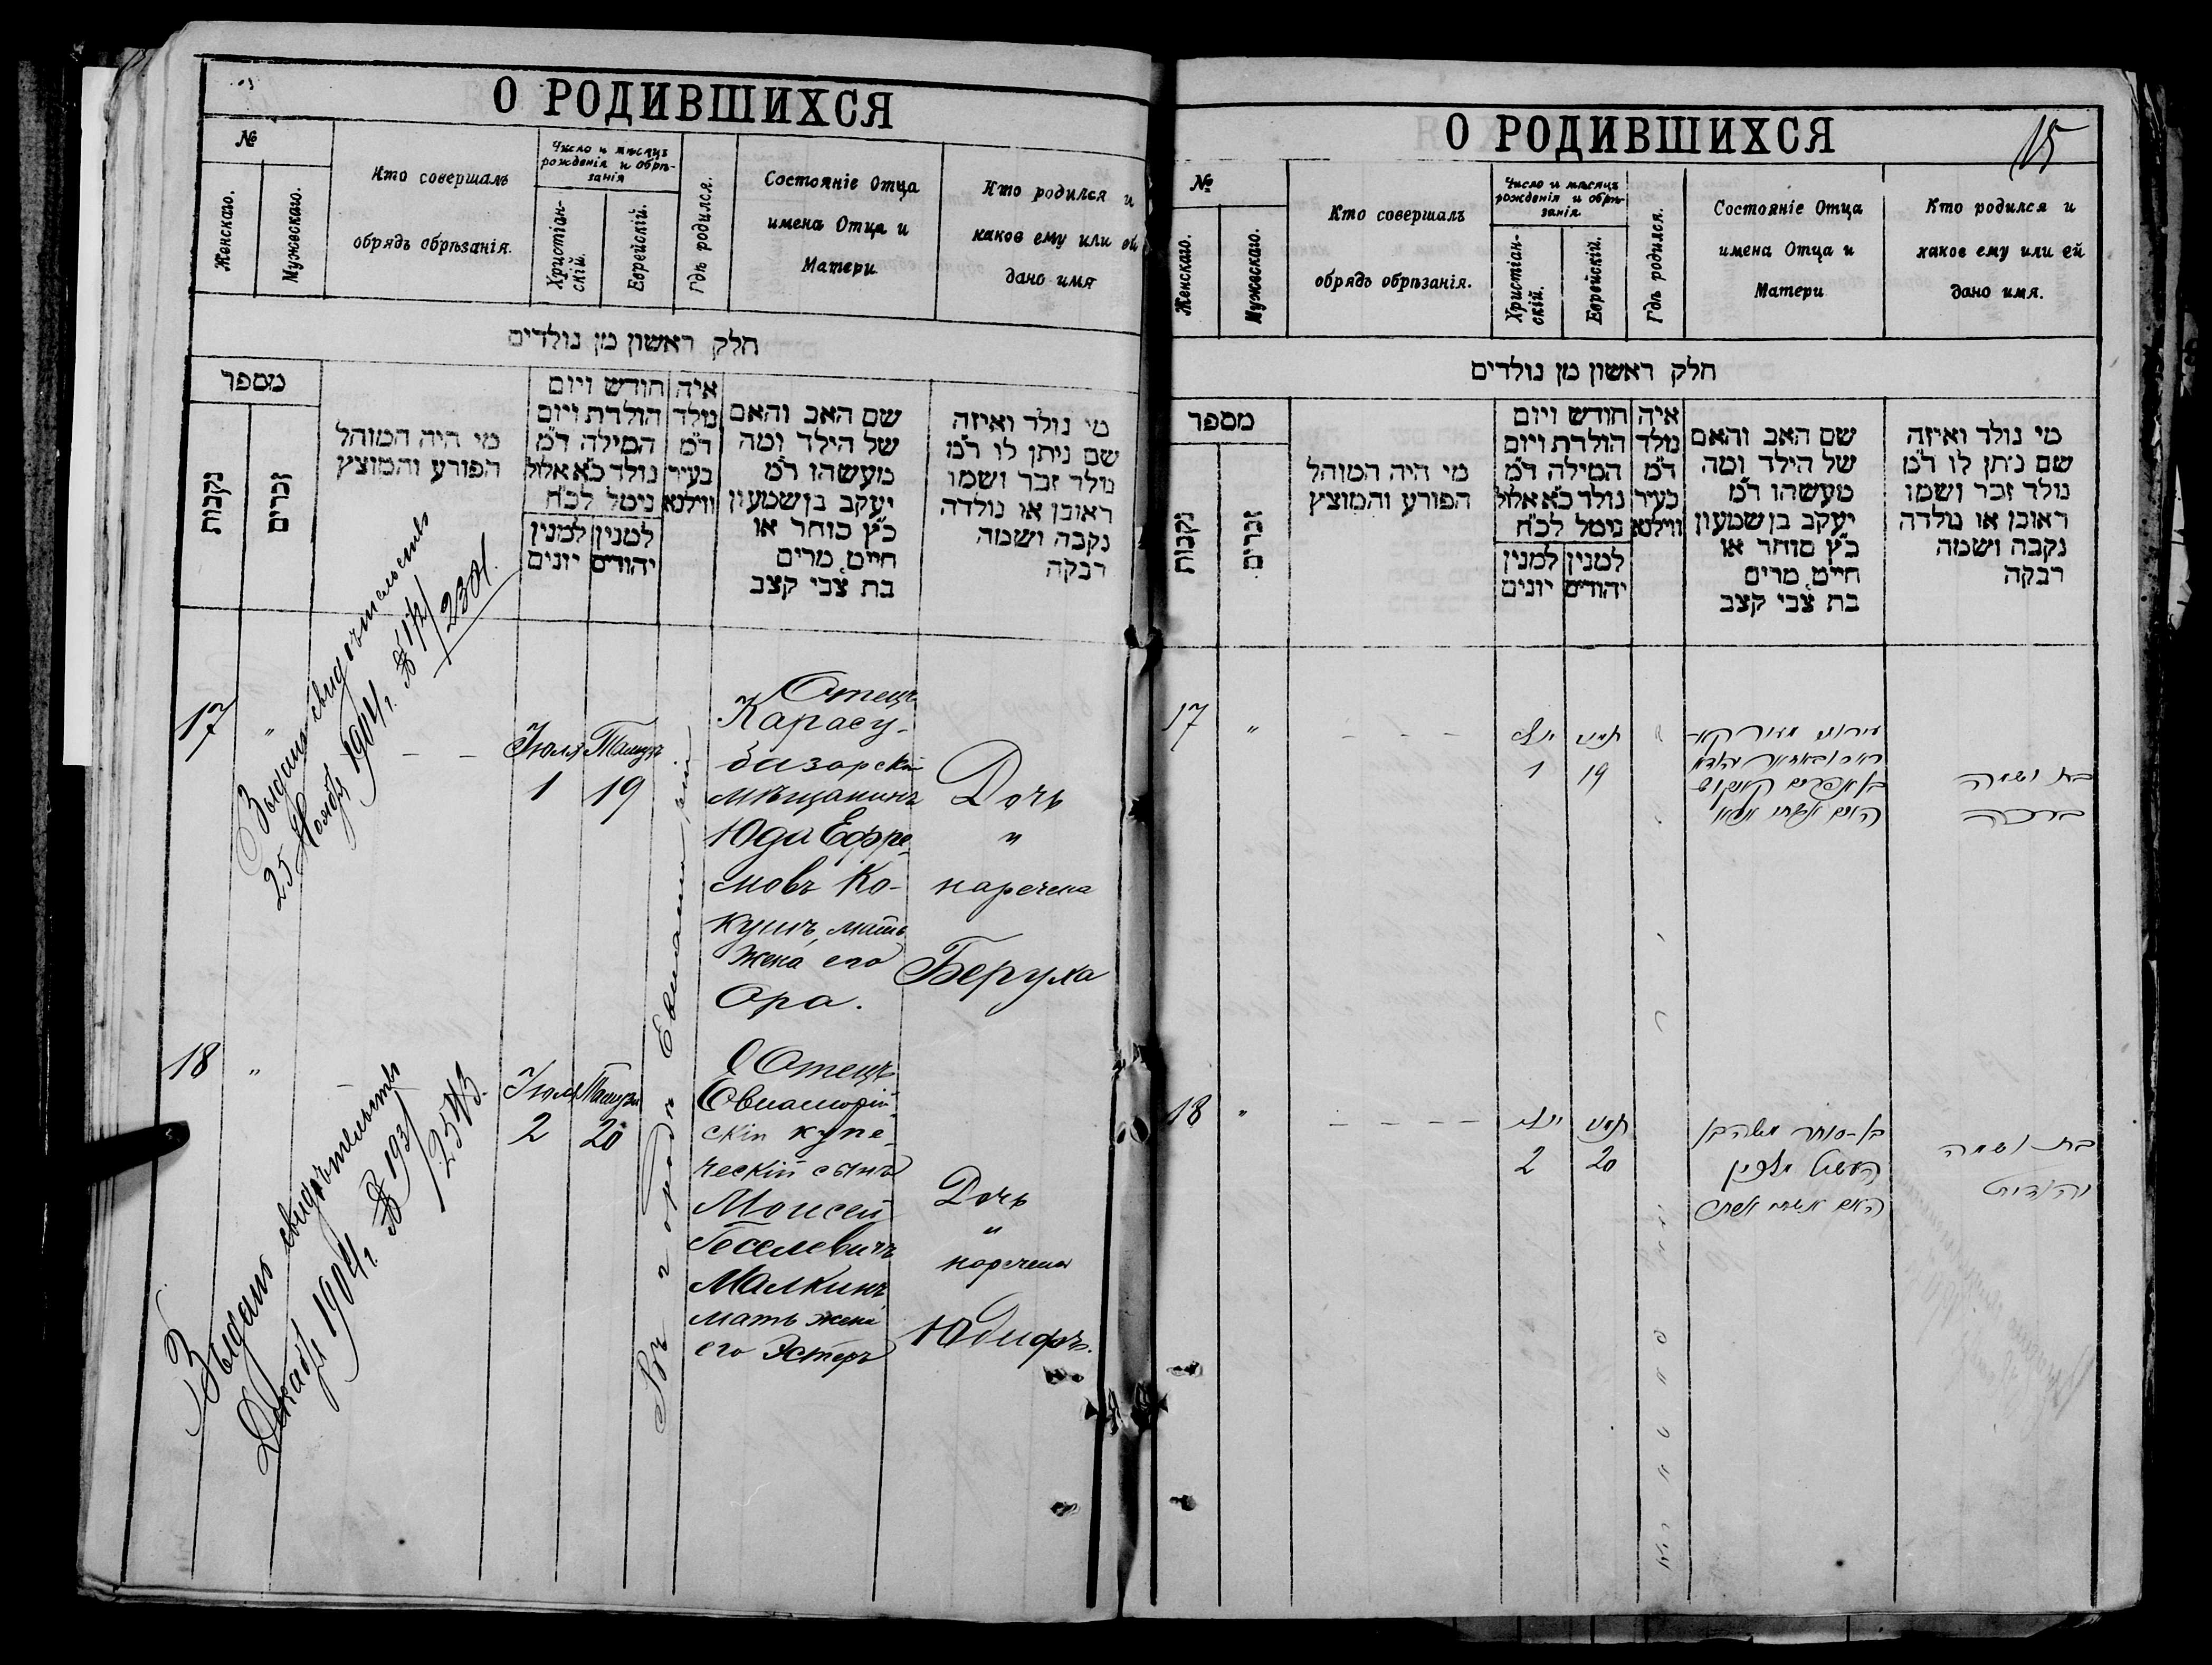 О РОДИВШИХСЯ
№
Женскаго.
Мужескаго.
Кто совершалъ
обрядъ обрѣзанія.
Число и мѣсяцъ
рожденія и обрѣ-
занія
Христіан-
скій.
Еврейскій.
Гдѣ родился.
Состояніе Отца
имена Отца и
Матери
Кто родился и
какое ему или ей
дано имя
חלק ראשון מן נולדים
מספר
נקבות
זכרים
מי היה המוהל
הפורע והמוצץ
חודש ויום
הולדת ויום
המילה ד״מ
נולד כ״א אלול
נימל לכ״ח
למנין למנין
יהודים יונים
איה
נולד
ד״מ
בעיר
ווילנא
שם האב והאם
של הילד ומה
מעשהו ד״מ
יעקב בן שמעון
כ״ץ סוחר או
חייט, מרים
בת צבי קצב
מי נולד ואיזה
שם ניתן לו ד״מ
נולד זכר ושמו
ראובן או נולדה
נקבה ושמה
רבקה
17
"
Выдано свидѣтельство
25 Ноября 1904 г. № 174
/2304.
— —
Іюля
1
Тамузъ
19
Отецъ
Карасу-
базарскій
мѣщанинъ
Юда Ефре-
мовъ Ко-
кушъ, мать
жена его
Ора.
Дочь
"
наречена
Беруха
Въ городѣ Евпаторіи
18
"
Выдано свидѣтельство
Декабр 1904 г. № 193
/2543.
Іюля
2
Тамузъ
20
Отецъ
Евпаторій-
скій купе-
ческій сынъ
Моисей
Іоселевичъ
Малкинъ
мать жена
его Эстеръ
Дочь
"
наречена
Юдифъ.
О РОДИВШИХСЯ
15
№
Женскаго.
Мужескаго.
Кто совершалъ
обрядъ обрѣзанія.
Число и мѣсяцъ
рожденія и обрѣ-
занія
Христіан-
скій.
Еврейскій.
Гдѣ родился.
Состояніе Отца
имена Отца и
Матери
Кто родился и
какое ему или ей
дано имя.
חלק ראשון מן נולדים
מספר
נקבות
זכרים
מי היה המוהל
הפורע והמוצץ
חודש ויום
הולדת ויום
המילה ד״מ
נולד כ״א אלול
נימל לכ״ח
למנין למנין
יהודים יונים
איה
נולד
ד״מ
בעיר
ווילנא
שם האב והאם
של הילד ומה
מעשהו ד״מ
יעקב בן שמעון
כ״ץ סוחר או
חייט, מרים
בת צבי קצב
מי נולד ואיזה
שם ניתן לו ד״מ
נולד זכר ושמו
ראובן או נולדה
נקבה ושמה
רבקה
17
"
- - -
1
19
בת ושמה
ברוכה
18
"
- - - - -
2
20
בת ושמה
יהודית